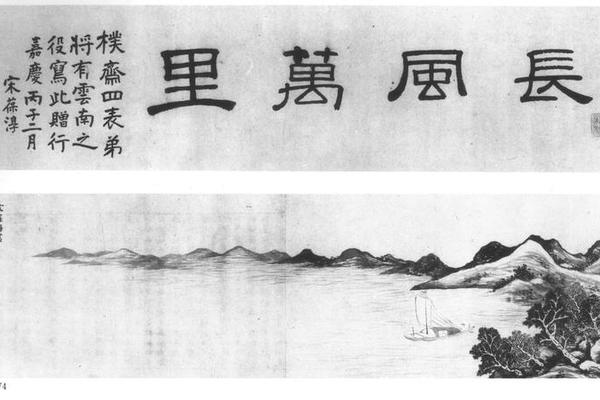 長風萬里
樸齋四表弟
將有雲南之
役寫此贈行
嘉慶丙子二月
宋葆淳
74